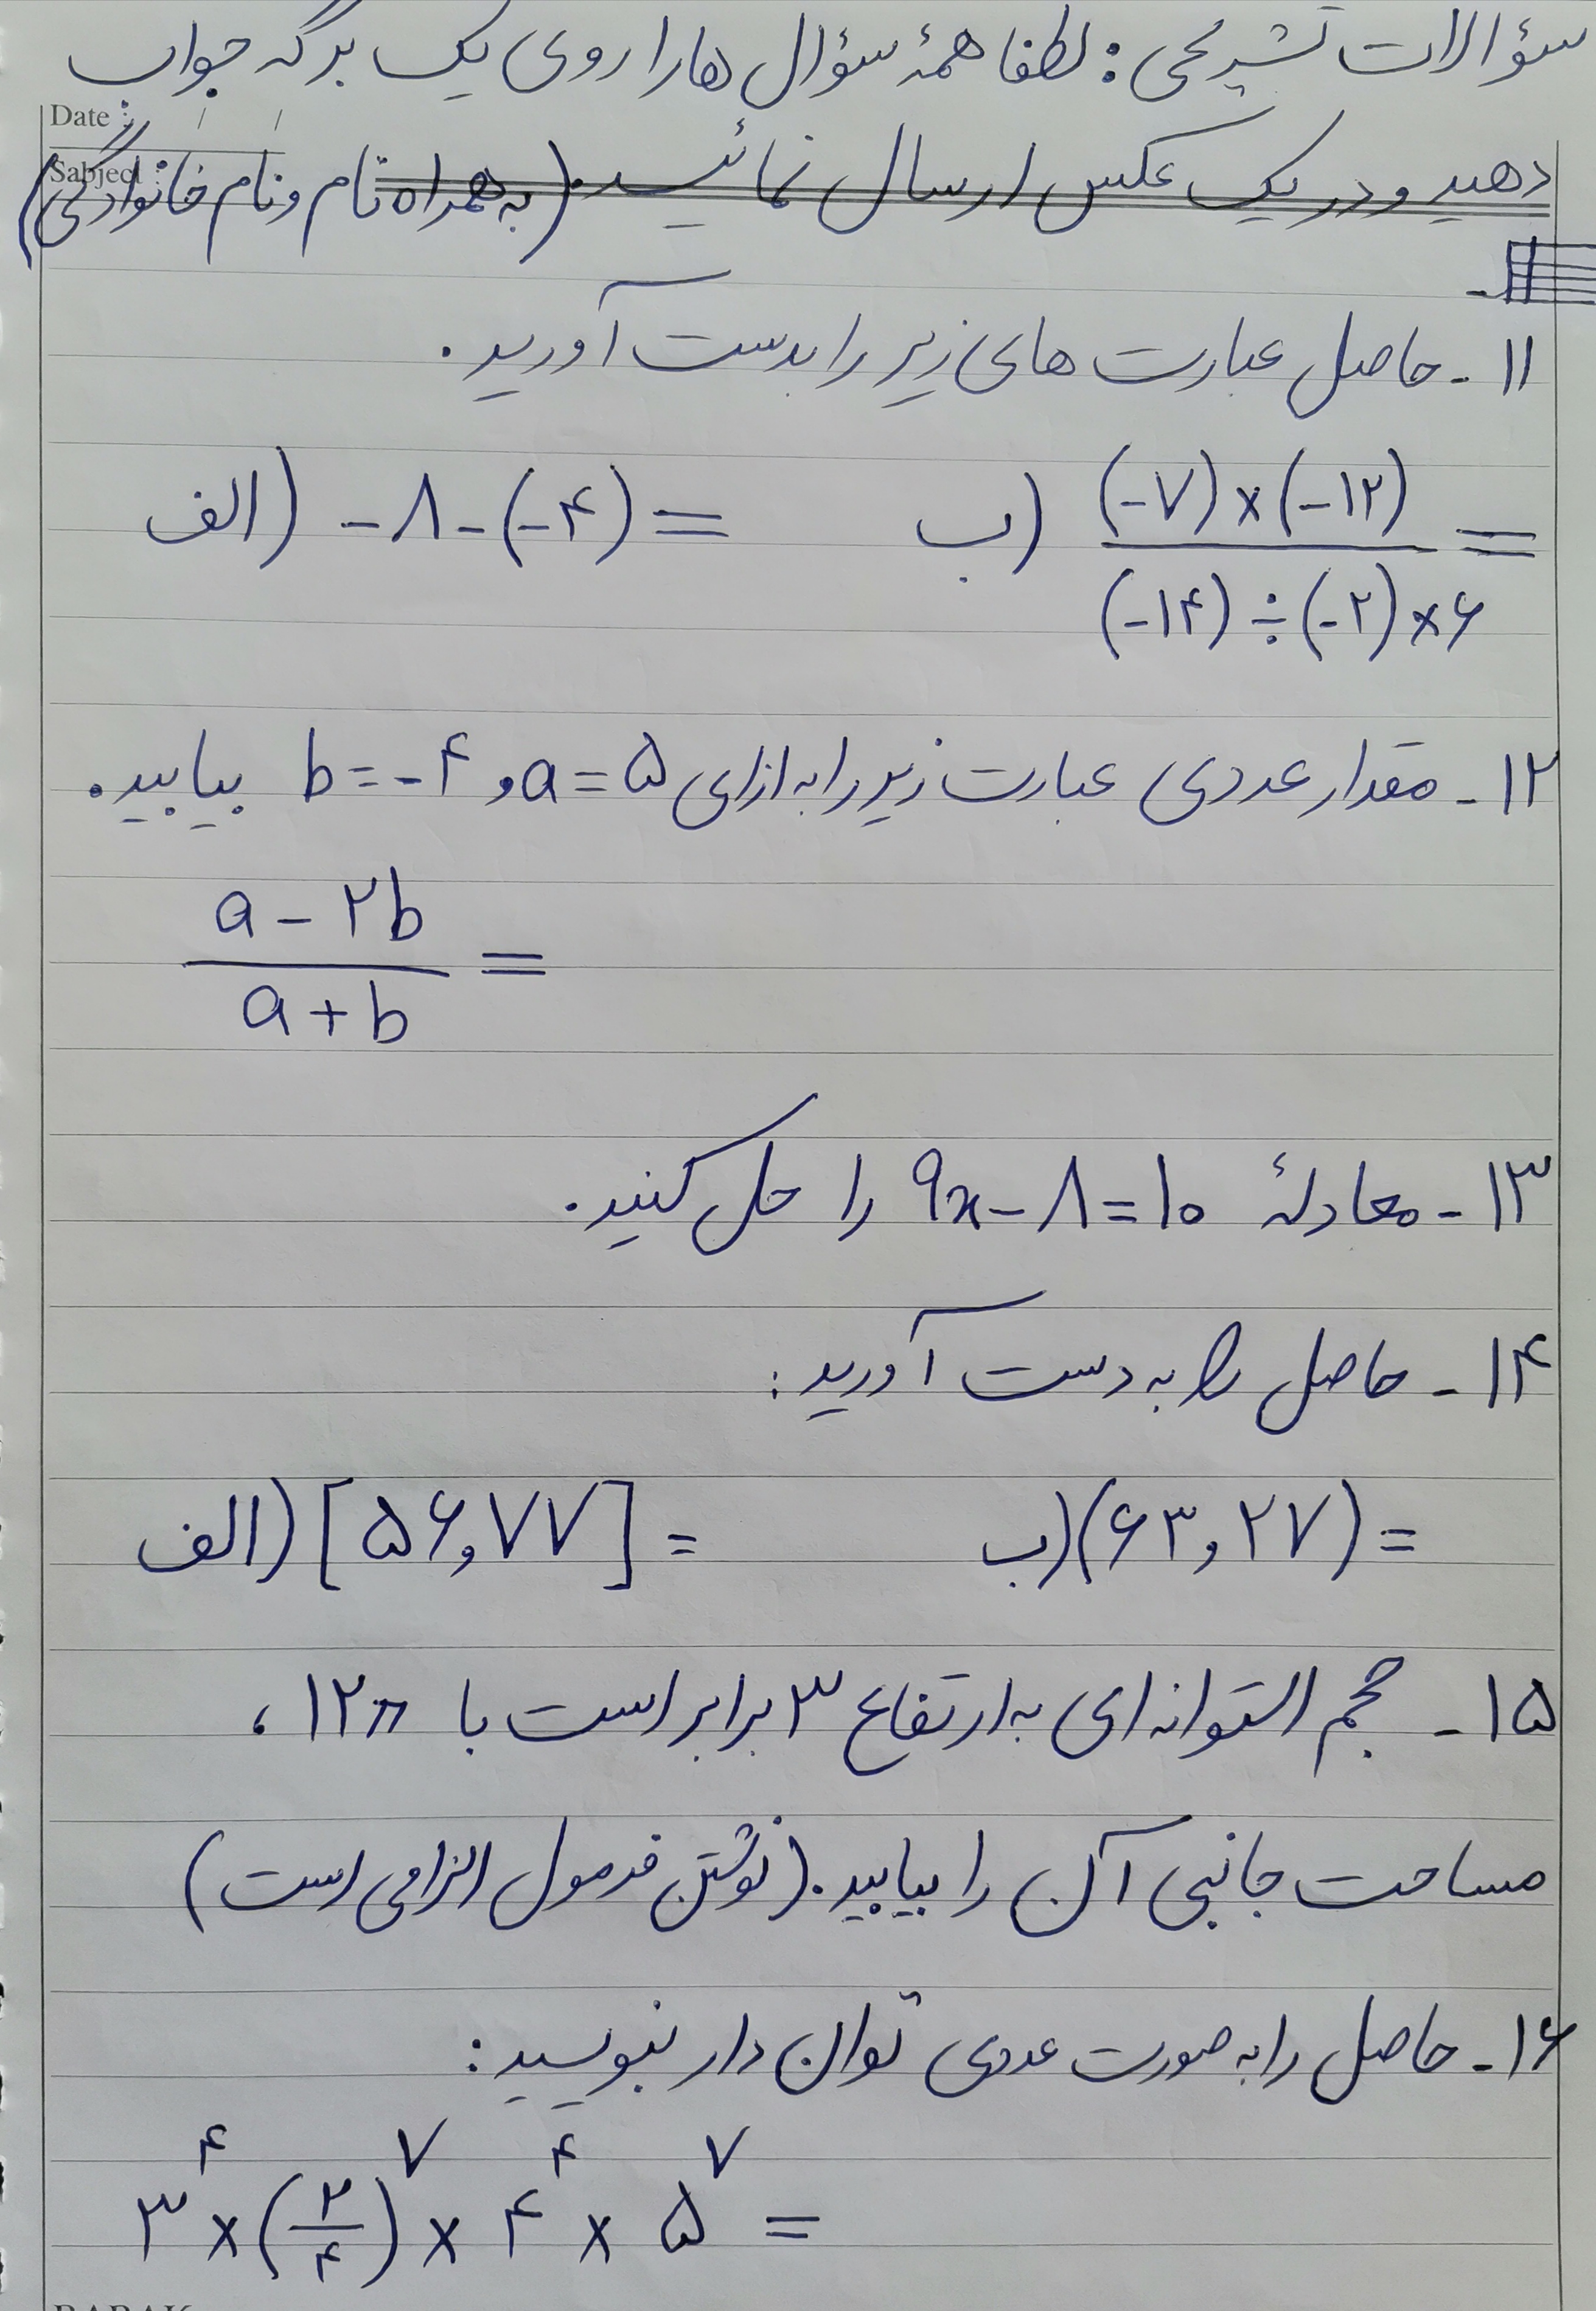 سؤالات تشریحی: لطفا همهٔ سؤال ها را روی یک برگه جواب
Date: / /
Sabject:
دهید و در یک عکس ارسال نمائید. (به همراه نام و نام خانوادگی)
۱۱ـ حاصل عبارت های زیر را بدست آورید.
الف) -۸-(-۴) =
ب) (-۷)×(-۱۲) =
(-۱۴)÷(-۲)×۶
۱۲ـ مقدار عددی عبارت زیر را به ازای a=۵ و b=-۴ بیابید.
a-۲b =
a+b
۱۳ـ معادلهٔ ۹x-۸=۱۰ را حل کنید.
۱۴ـ حاصل را به دست آورید:
الف) [۵۶,۷۷] =
ب) (۶۳,۲۷) =
۱۵ـ حجم استوانه ای به ارتفاع ۳ برابر است با ۱۲π،
مساحت جانبی آن را بیابید. (نوشتن فرمول الزامی است)
۱۶ـ حاصل را به صورت عددی توان دار بنویسید:
۳^۴ × (۲/۴)^۷ × ۴^۴ × ۵^۷ =